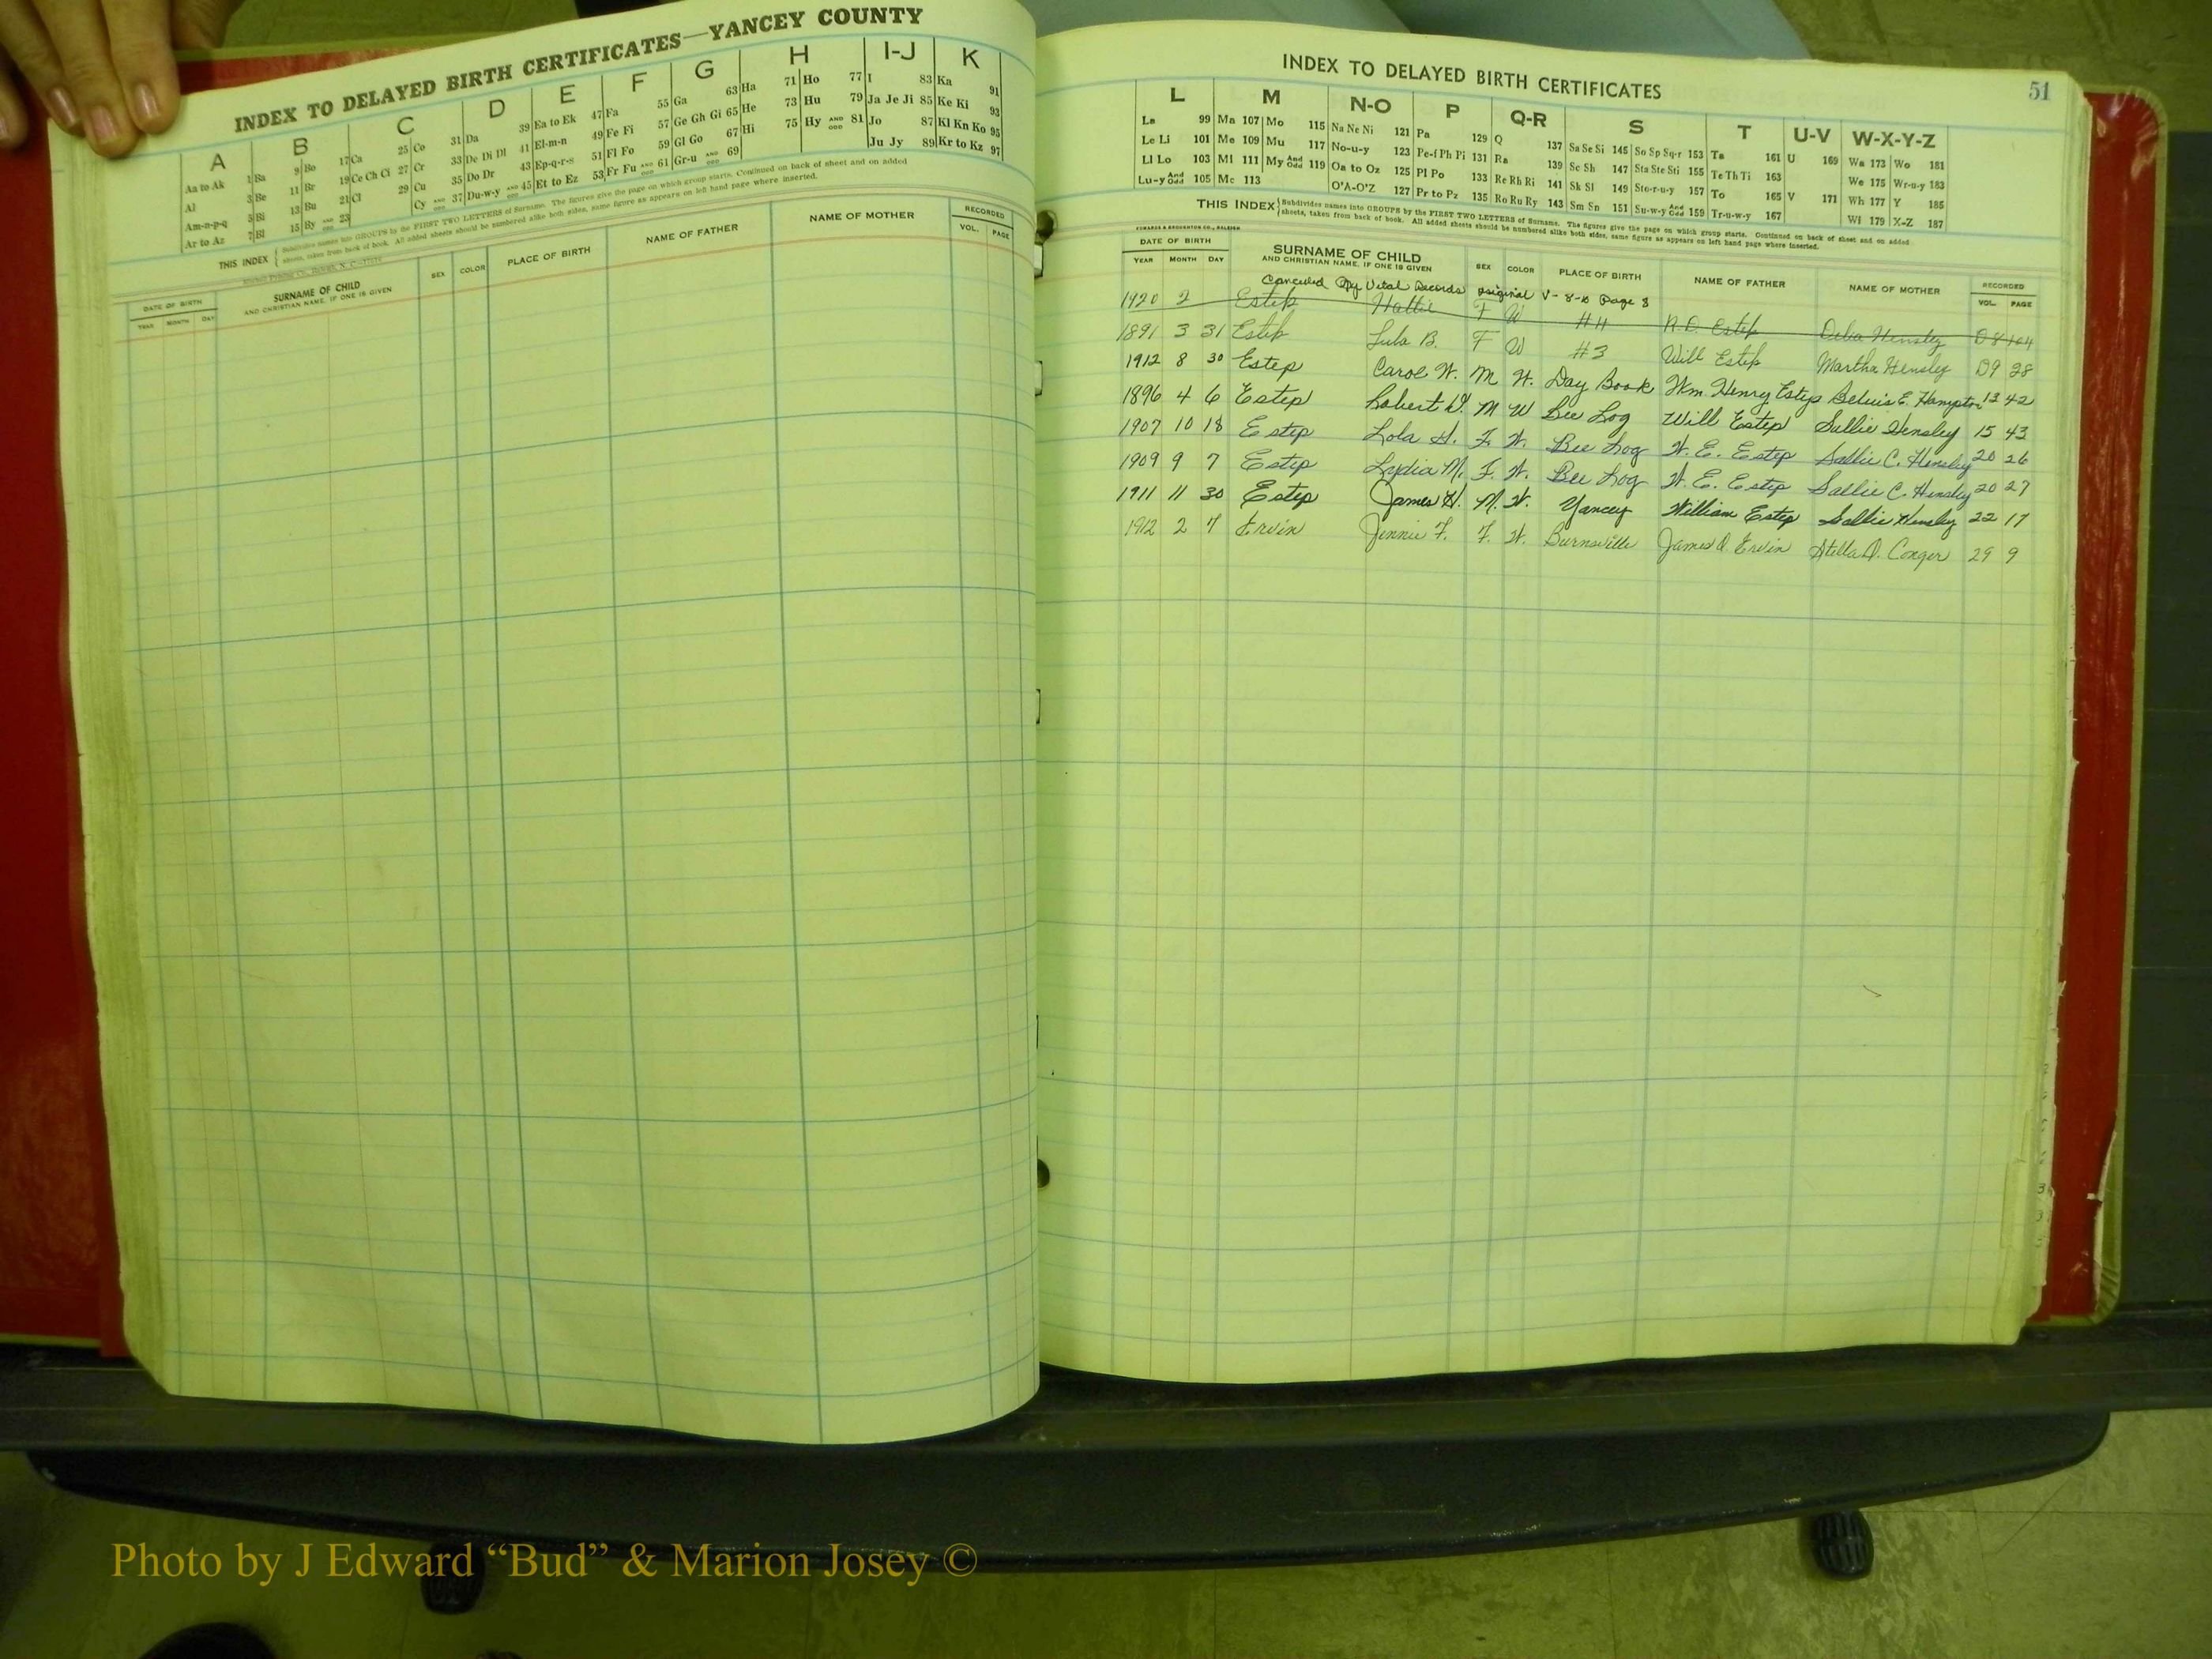 INDEX TO DELAYED BIRTH CERTIFICATES—YANCEY COUNTY
A B C D E F G H I-J K
Aa to Ak 1 Ba 9 Bo 17 Ca 25 Co 31 Da 39 Ea to Ek 47 Fa 55 Ga 63 Ha 71 Ho 77 I 83 Ka 91
Al 3 Be 11 Br 19 Ce Ch Ci 27 Cr 33 De Di Dl 41 El-m-n 49 Fe Fi 57 Ge Gh Gi 65 He 73 Hu 79 Ja Je Ji 85 Ke Ki 93
Am-n-p-q 5 Bi 13 Bu 21 Cl 29 Cu 35 Do Dr 43 Ep-q-r-s 51 Fl Fo 59 Gl Go 67 Hi 75 Hy AND ODD 81 Jo 87 Kl Kn Ko 95
Ar to Az 7 Bl 15 By AND ODD 23 Cy AND ODD 37 Du-w-y AND ODD 45 Et to Ez 53 Fr Fu AND ODD 61 Gr-u AND ODD 69 Ju Jy 89 Kr to Kz 97
THIS INDEX Subdivides names into GROUPS by the FIRST TWO LETTERS of Surname. The figures give the page on which group starts. Continued on back of sheet and on added
sheets, taken from back of book. All added sheets should be numbered alike both sides, same figure as appears on left hand page where inserted.
DATE OF BIRTH SURNAME OF CHILD SEX COLOR PLACE OF BIRTH NAME OF FATHER NAME OF MOTHER RECORDED
YEAR MONTH DAY AND CHRISTIAN NAME, IF ONE IS GIVEN VOL. PAGE
INDEX TO DELAYED BIRTH CERTIFICATES 51
L M N-O P Q-R S T U-V W-X-Y-Z
La 99 Ma 107 Mo 115 Na Ne Ni 121 Pa 129 Q 137 Sa Se Si 145 So Sp Sq-r 153 Ta 161 U 169 Wa 173 Wo 181
Le Li 101 Me 109 Mu 117 No-u-y 123 Pe-f Ph Pi 131 Ra 139 Sc Sh 147 Sta Ste Sti 155 Te Th Ti 163 We 175 Wr-u-y 183
Ll Lo 103 Mi 111 My And Odd 119 Oa to Oz 125 Pl Po 133 Re Rh Ri 141 Sk Sl 149 Sto-r-u-y 157 To 165 V 171 Wh 177 Y 185
Lu-y And Odd 105 Mc 113 O'A-O'Z 127 Pr to Pz 135 Ro Ru Ry 143 Sm Sn 151 Su-w-y And Odd 159 Tr-u-w-y 167 Wi 179 X-Z 187
THIS INDEX Subdivides names into GROUPS by the FIRST TWO LETTERS of Surname. The figures give the page on which group starts. Continued on back of sheet and on added
sheets, taken from back of book. All added sheets should be numbered alike both sides, same figure as appears on left hand page where inserted.
EDWARDS & BROUGHTON CO., RALEIGH
DATE OF BIRTH SURNAME OF CHILD SEX COLOR PLACE OF BIRTH NAME OF FATHER NAME OF MOTHER RECORDED
YEAR MONTH DAY AND CHRISTIAN NAME, IF ONE IS GIVEN VOL. PAGE
Canceled By Vital Records original V-8-10 Page 8
1920 2 Estep Hattie F W #11 Estep Delia Hensley D8 104
1891 3 31 Estep Lula B. F W #3 Will Estep Martha Hensley D9 28
1912 8 30 Estep Carol W. M W. Day Book Wm. Henry Estep E. Hampton 13 42
1896 4 6 Estep Robert M W Bee Log Will Estep Sallie Hensley 15 43
1907 10 18 Estep Lola H. F. W. Bee Log W. E. Estep Sallie C. Hensley 20 26
1909 9 7 Estep Lydia M. F. W. Bee Log W. E. Estep Sallie C. Hensley 20 27
1911 11 30 Estep James H. M. W. Yancey William Estep Sallie Hensley 22 17
1912 2 7 Ervin Jennie F. F. W. Burnsville James Ervin Stella Conger 29 9
Photo by J Edward “Bud” & Marion Josey ©